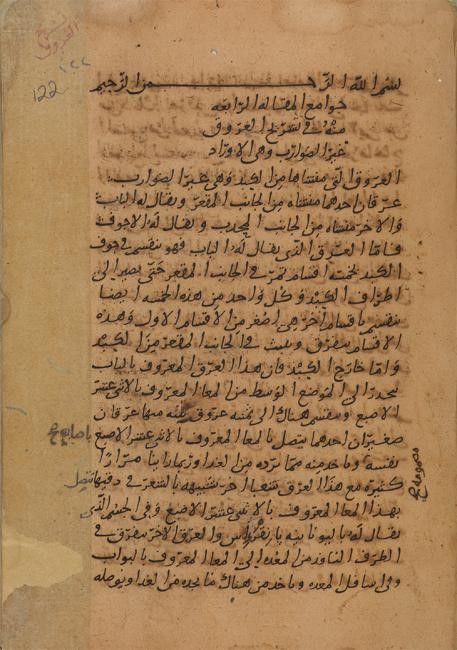 تشريح العروق
122
بسم الله الرحمن الرحيم
جوامع المقاله الرابعه
منه في تشريح العروق
غير الضوارب وهي الاوراد
العروق التي منشاها من الكبد وهي غير الضوارب
عرقان احدهما منشاه من الجانب المقعر ويقال له الباب
والاخر منشاه من الجانب المحدب ويقال له الاجوف
فاما العرق الذي يقال له الباب فهو ينقسم في جوف
الكبد بخمسه اقسام تمر في الجانب المقعر حتى يصير الى
اطراف الكبد وكل واحد من هذه الخمسه ايضا
ينقسم باقسام اخر هي اصغر من الاقسام الاول وهذه
الاقسام تتفرق وتنبث في الجانب المقعر من الكبد
واما خارج الكبد فان هذا العرق المعروف بالباب
ينحدر الى الموضع الوسط من المعا المعروف بالاثنى عشر
الاصبع وينقسم هناك الى ثمنيه عروق منها عرقان
صغيران احدهما يتصل بالمعا المعروف بالاثنى عشر الاصبع
نفسه وياخذ منه ما يرده من الغدا وربما راينا مرارا
كثيره مع هذا العرق شعبا اخر شبيهه بالشعر في دقتها تتصل
بهذا المعا المعروف بالاثنى عشر الاصبع وفي الجسم الذي
يقال له باليونانيه بانقراس والعرق الاخر يتفرق في
الطرف النافذ من المعده الى المعا المعروف بالبواب
وفي اسافل المعده وياخذ من هناك ما يجده من الغدا ويوصله